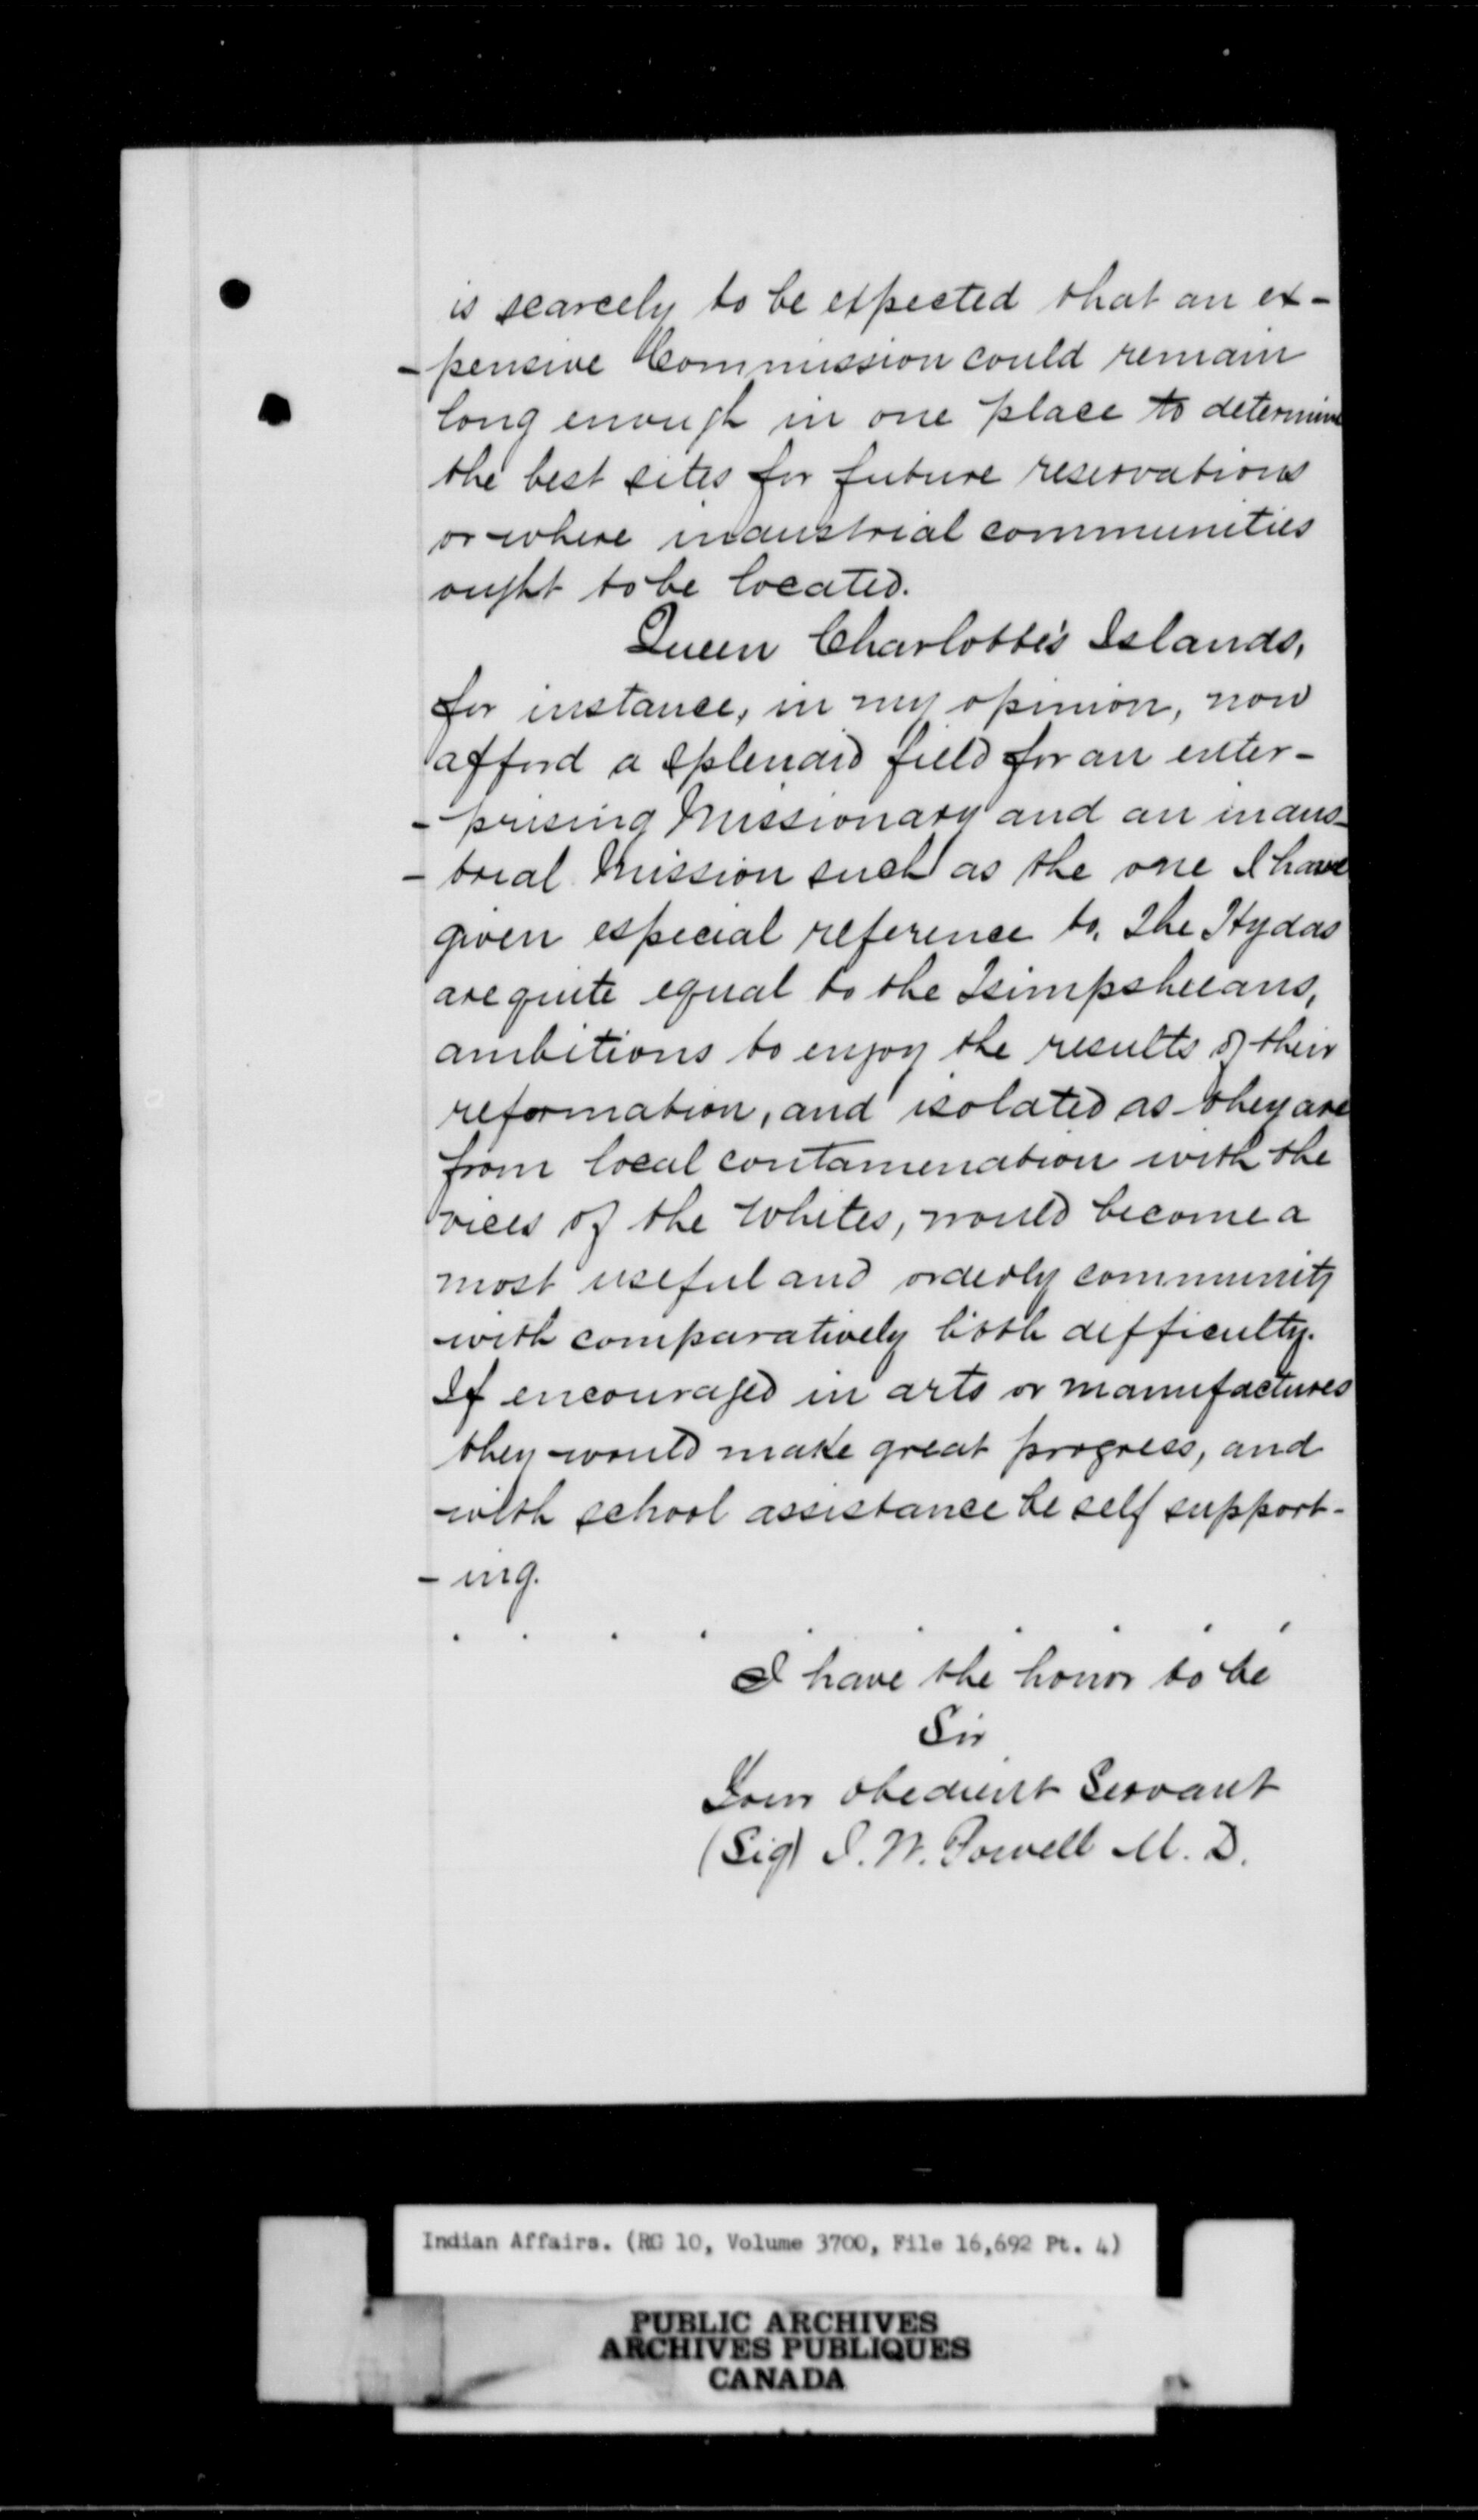 is scarcely to be expected that an ex-
-pensive Commission could remain
long enough in one place to determine
the best sites for future reservations
or where industrial communities
ought to be located.
Queen Charlotte's Islands,
for instance, in my opinion, now
afford a splendid field for an enter-
-prising Missionary and an indus-
-trial Mission such as the one I have
given especial reference to. The Hydas
are quite equal to the Tsimpsheeans,
ambitions to enjoy the results of their
reformation, and isolated as they are
from local contamenation with the
vices of the Whites, would become a
most useful and orderly community
with comparatively little difficulty.
If encouraged in arts or manufactures
they would make great progress, and
with school assistance be self support-
- ing.
. . . . . . . . . .
I have the honor to be
Sir
Your obedient Servant
(Sig) I. W. Powell M. D.
Indian Affairs. (RG 10, Volume 3700, File 16,692 Pt. 4)
PUBLIC ARCHIVES
ARCHIVES PUBLIQUES
CANADA